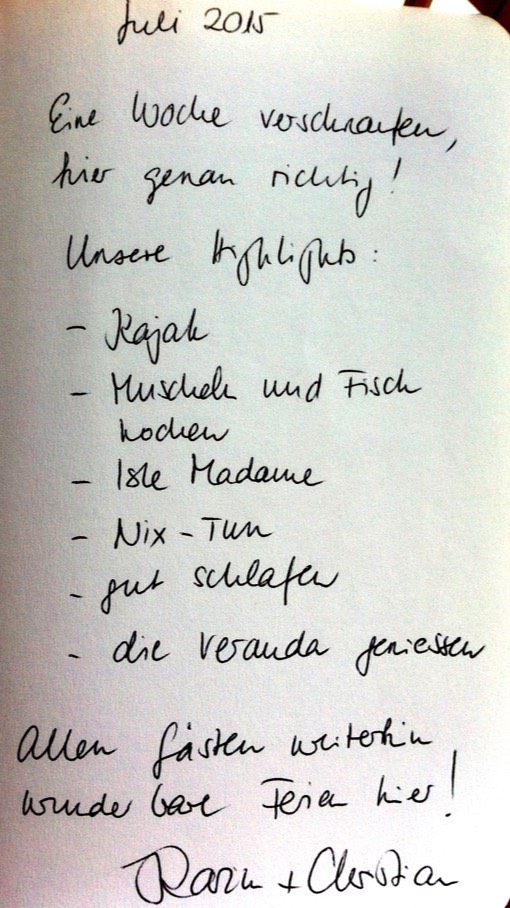 Juli 2015
Eine Woche verschnaufen,
hier genau richtig!
Unsere Highlights:
- Kajak
- Muscheln und Fisch
kochen
- Isle Madame
- Nix-Tun
- gut schlafen
- die Veranda geniessen
Allen Gästen weiterhin
wunderbare Ferien hier!
+ Christian